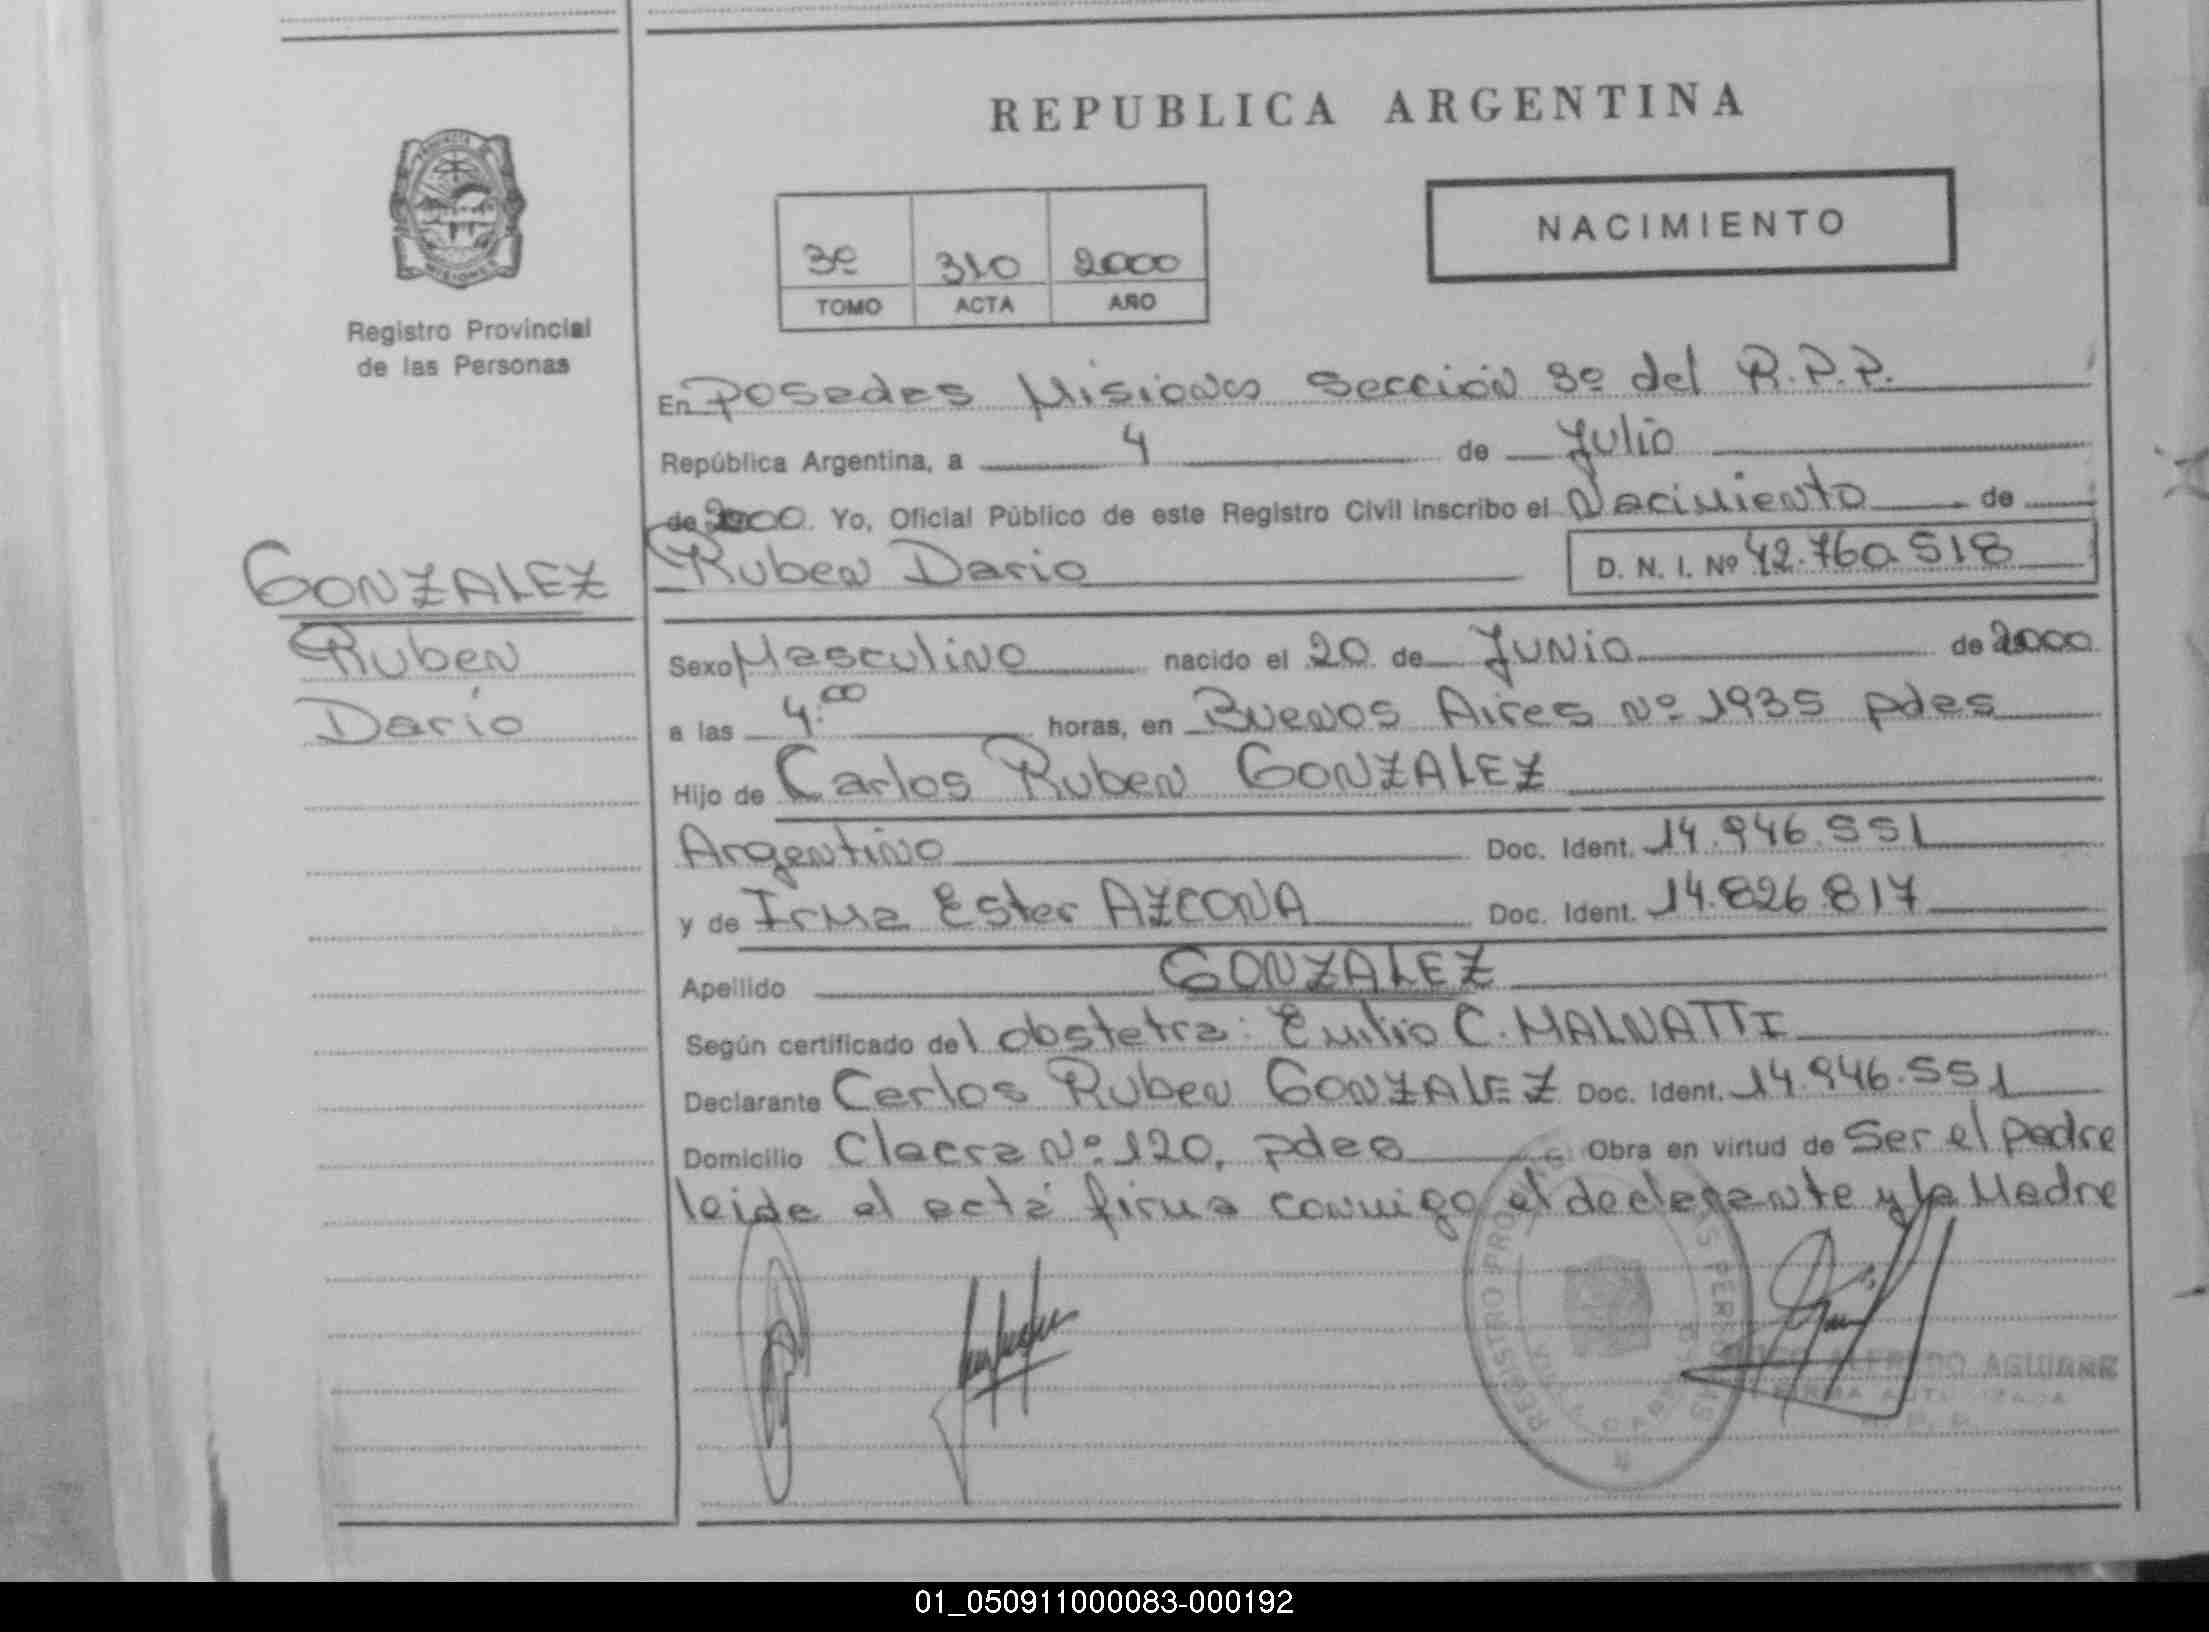 REPUBLICA ARGENTINA
PROVINCIA DE
MISIONES
Registro Provincial
de las Personas
NACIMIENTO
3º 310 2000
TOMO ACTA AÑO
En Posadas Misiones Sección 3º del R.P.P.
República Argentina, a 4 de Julio
de 2000. Yo, Oficial Público de este Registro Civil inscribo el Nacimiento de
Ruben Dario D. N. I. Nº 42.760.518
GONZALEZ
Ruben
Dario
Sexo Masculino nacido el 20 de Junio de 2000
a las 4.00 horas, en Buenos Aires Nº 1935 pdas
Hijo de Carlos Ruben GONZALEZ
Argentino Doc. Ident. 14.946.551
y de Irma Ester AZCONA Doc. Ident. 14.826.817
Apellido GONZALEZ
Según certificado del obstetra: Emilio C. MALNATTI
Declarante Carlos Ruben GONZALEZ Doc. Ident. 14.946.551
Domicilio Chacra Nº 120, pdas Obra en virtud de Ser el padre
leida el acta firma conmigo el declarante y la Madre
REGISTRO PERSONAS
ALFREDO AGUIRRE
FIRMA
01_050911000083-000192